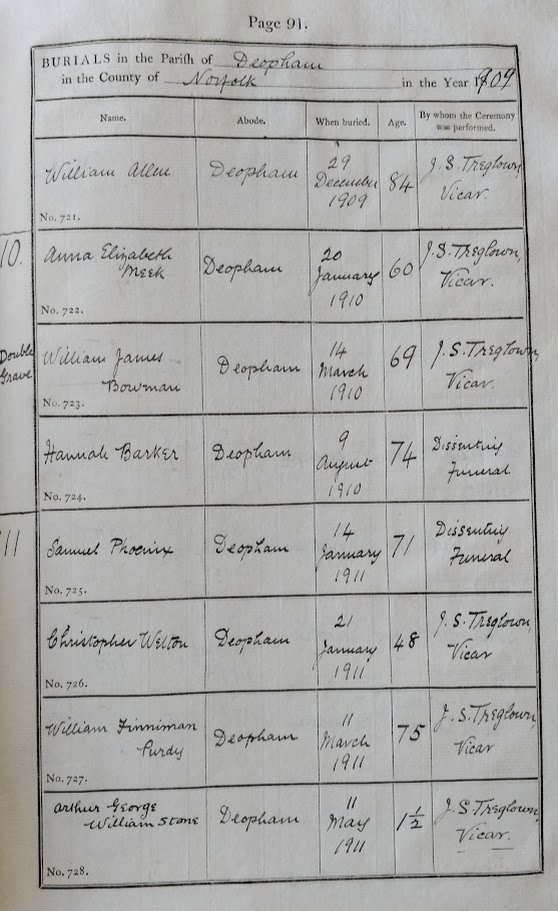 Page 91.
BURIALS in the Parish of Deopham
in the County of Norfolk in the Year 1909
Name. Abode. When buried. Age. By whom the Ceremony was performed.
William Allen Deopham 29 December 1909 84 J. S. Treglown, Vicar.
No. 721.
10.
Anna Elizabeth Meek Deopham 20 January 1910 60 J. S. Treglown, Vicar.
No. 722.
Double Grave
William James Bowman Deopham 14 March 1910 69 J. S. Treglown, Vicar.
No. 723.
Hannah Barker Deopham 9 August 1910 74 Dissenting Funeral
No. 724.
11
Samuel Phoenix Deopham 14 January 1911 71 Dissenting Funeral
No. 725.
Christopher Welton Deopham 21 January 1911 48 J. S. Treglown, Vicar
No. 726.
William Finniman Purdy Deopham 11 March 1911 75 J. S. Treglown, Vicar
No. 727.
Arthur George William Stone Deopham 11 May 1911 1½ J. S. Treglown, Vicar.
No. 728.